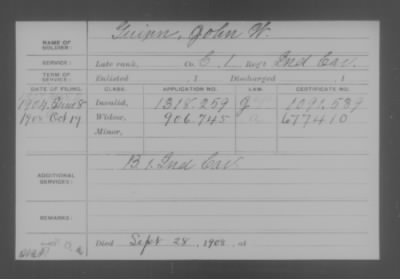 NAME OF SOLDIER: Guinn, John W.
SERVICE: Late rank, Co. C, 1 Reg't Ind Cav.
TERM OF SERVICE: Enlisted , 1 Discharged , 1
DATE OF FILING. CLASS. APPLICATION NO. LAW. CERTIFICATE NO.
1904, June 8 Invalid, 1318.259 1091.539
1908 Oct 17 Widow, 906.745 677410
Minor,
ADDITIONAL SERVICES: B 1, Ind Cav.
REMARKS:
Died Sept 28, 1908, at